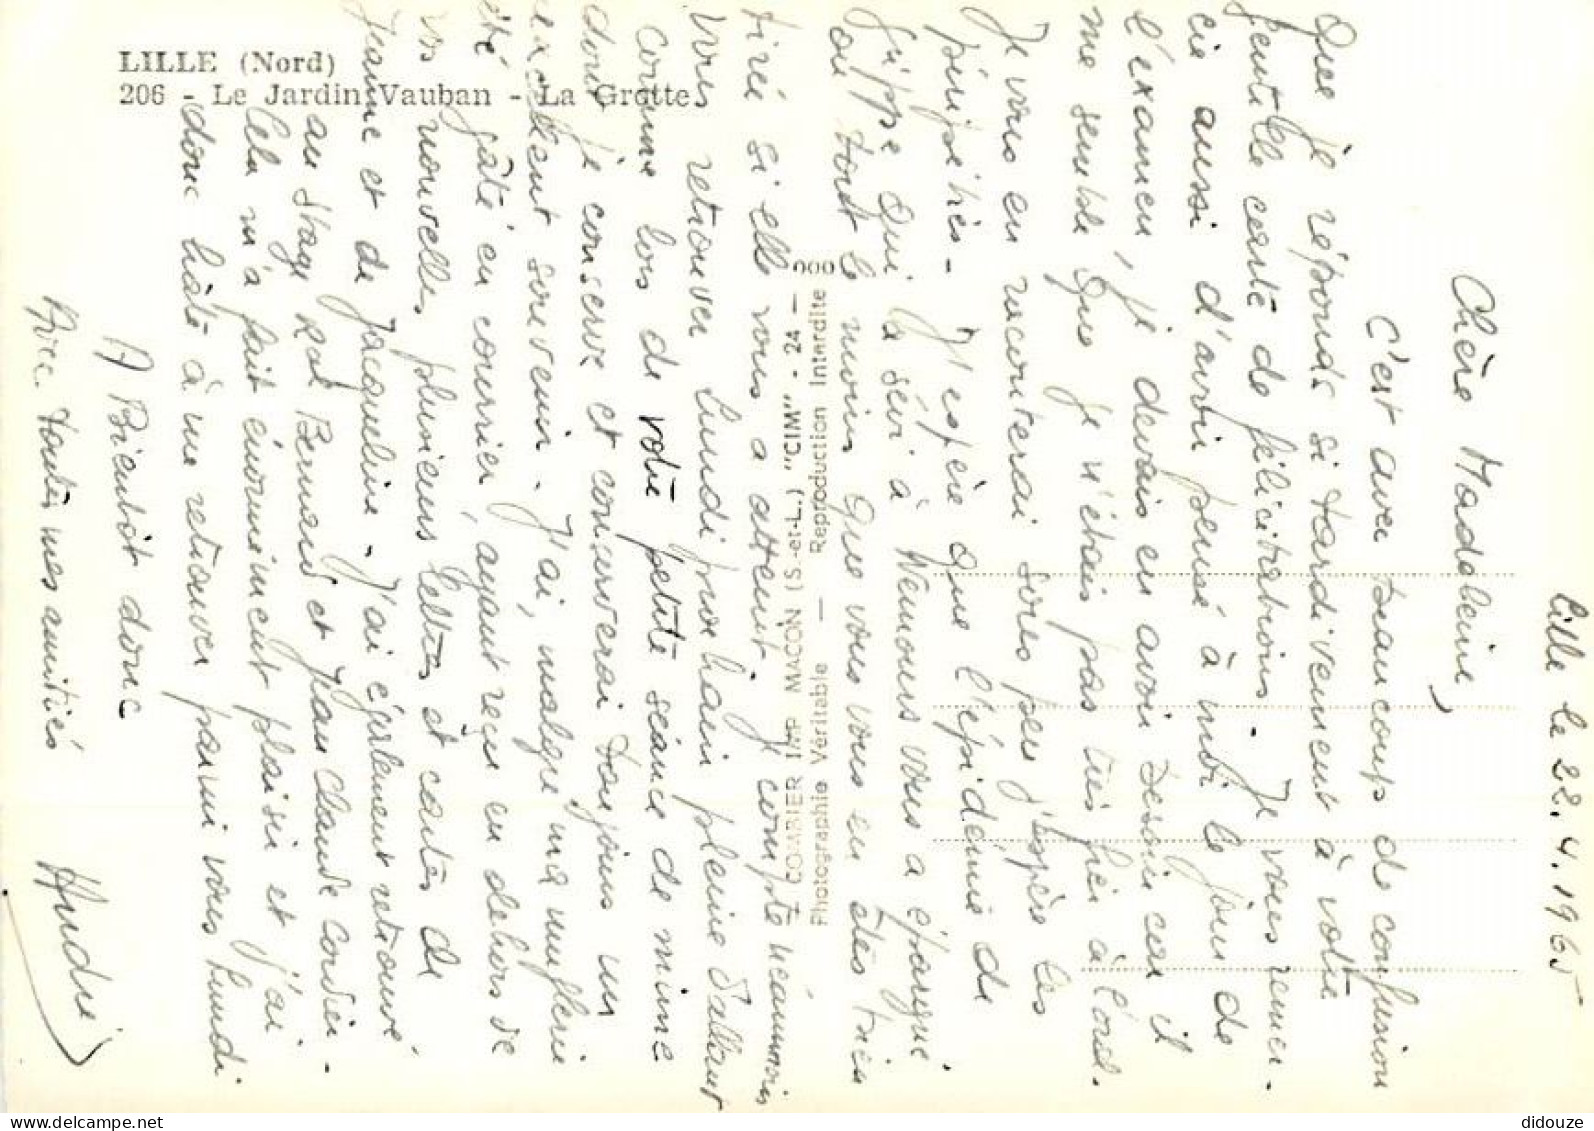 LILLE (Nord)
206 - Le Jardin Vauban - La Grotte
COMBIER IMP. MACON (S.-et-L.) "CIM" - 24 -
Photographie Véritable — Reproduction Interdite
Lille le 22.4.1965
Chère Madeleine,
C'est avec beaucoup de confusion
que je réponds si tardivement à votre
gentille carte de félicitations. Je vous remer-
cie aussi d'avoir pensé à moi le jour de
l'examen, je devais en avoir besoin car il
me semble que je n'étais pas très fier à l'oral.
Je vous en raconterai sires peu j'espère les
péripéties - J'espère que l'épidémie de
grippe qui a sévi à Nemours vous a épargné,
ou tout le moins que vous vous en êtes bien
tirée si elle vous a atteint. Je compte néanmoins
vous retrouver lundi prochain pleine d'allant
comme lors de votre petite séance de mime
dont je conserve et conserverai toujours un
excellent souvenir. J'ai, malgré ma muflerie
été gâté en courrier, ayant reçu en dehors de
vos nouvelles, plusieurs lettres et cartes de
Jeanne et de Jacqueline. J'ai également retrouvé
au stage Bernard et Jean Claude Cordier.
Cela m'a fait énormément plaisir et j'ai
donc hâte à me retrouver parmi vous lundi
A Bientôt donc
Avec toutes mes amitiés
André